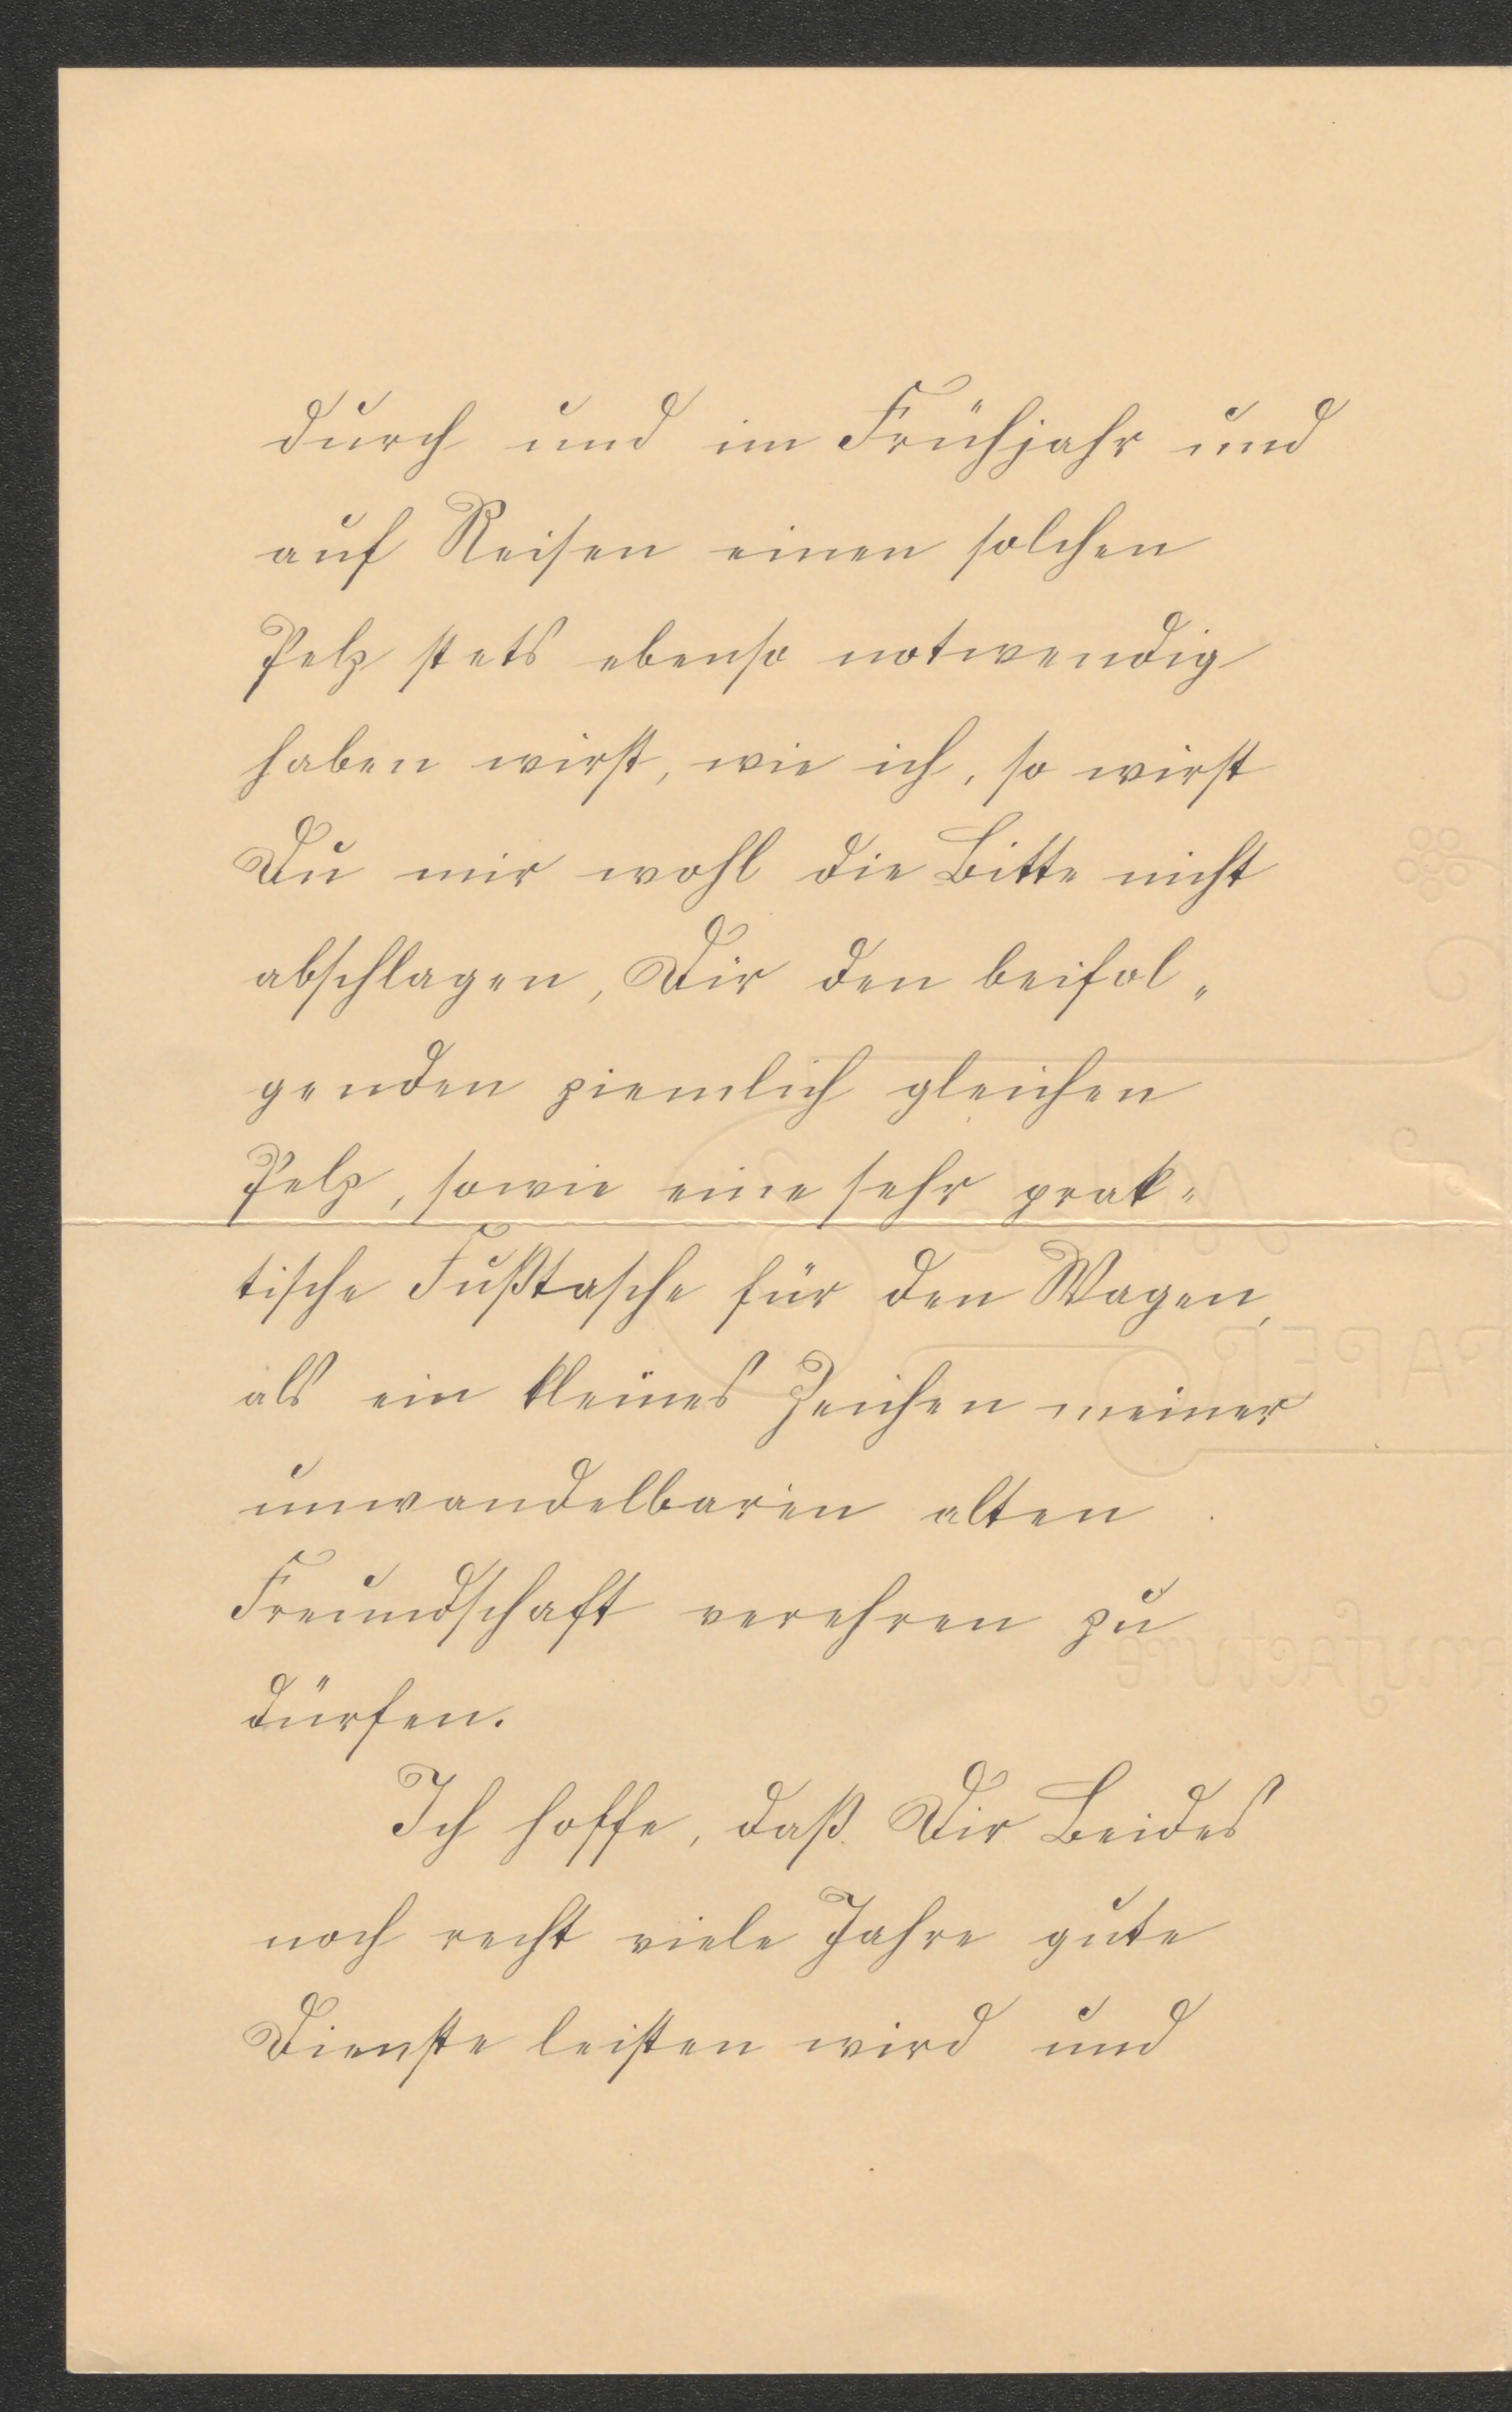 durch und im Frühjahr und
auf Reisen einen solchen
Pelz stets ebenso notwendig
haben wirst, wie ich, so wirst
Du mir wohl die Bitte nicht
abschlagen, Dir den beifol„
genden ziemlich gleichen
Pelz, sowie eine sehr prak„
tische Fußtasche für den Wagen,
als ein kleines Zeichen meiner
unwandelbaren alten
Freundschaft verehren zu
dürfen.
Ich hoffe, daß Dir Beides
noch recht viele Jahre gute
Dienste leisten wird und